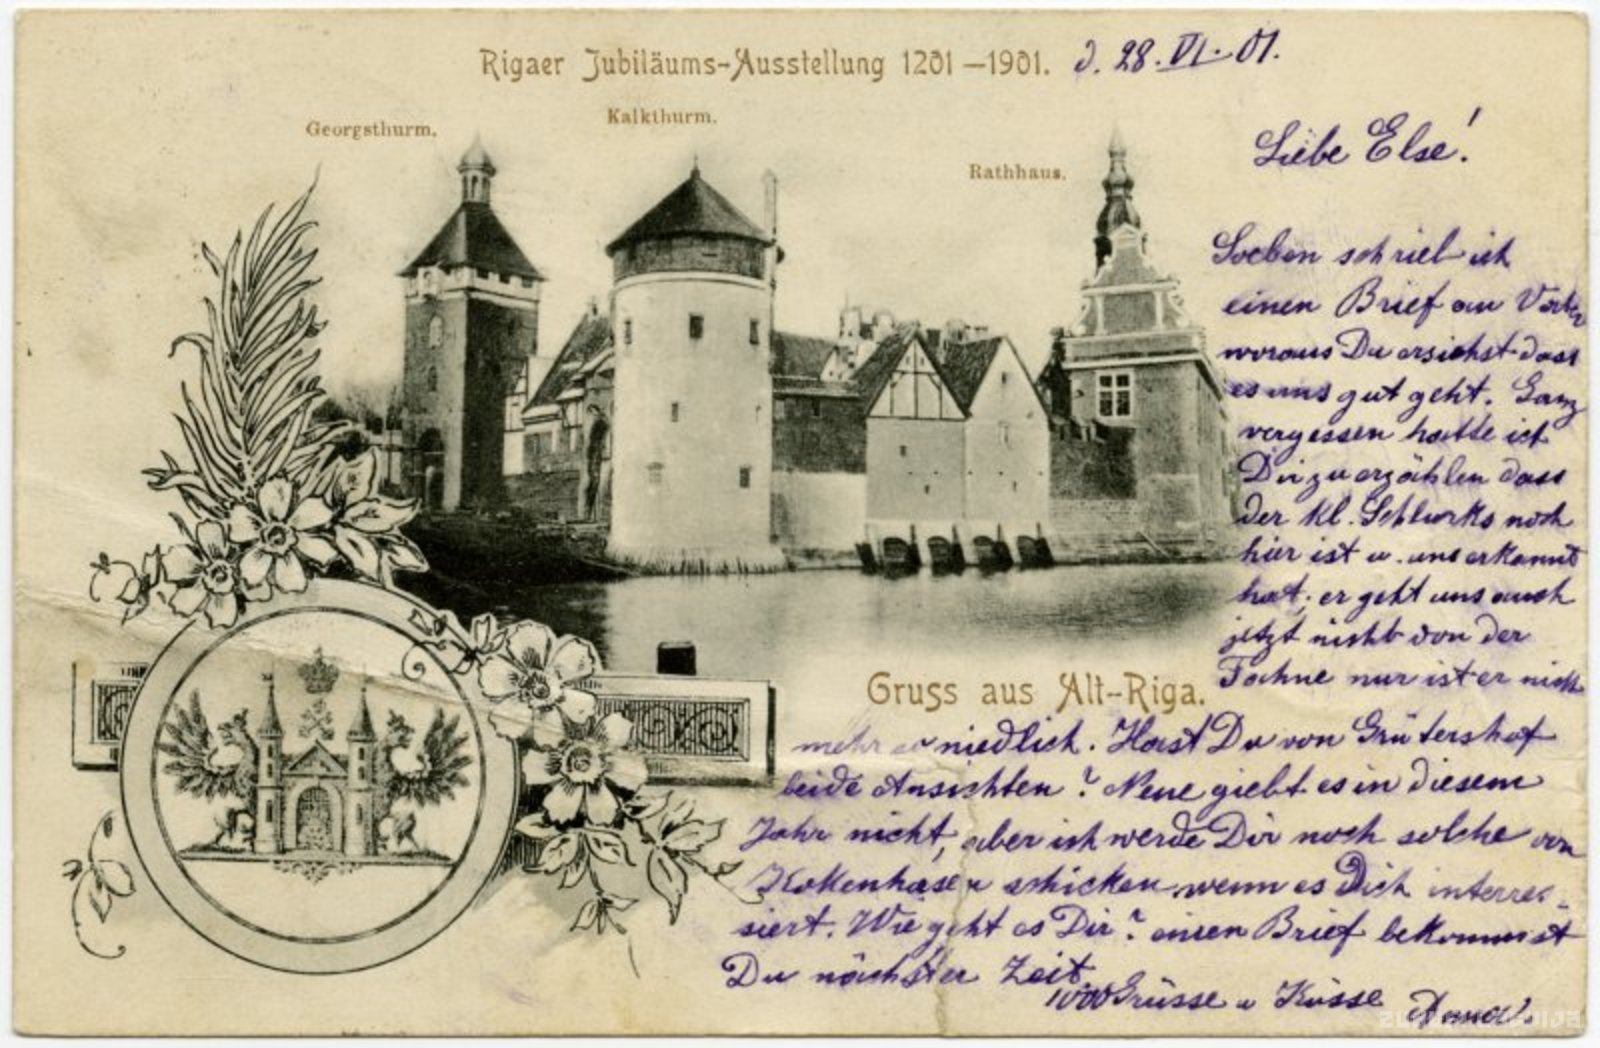 Rigaer Jubiläums-Ausstellung 1201-1901.
d. 28. VI. 01.
Georgsthurm.
Kalkthurm.
Rathhaus.
Liebe Else!
Soeben schrieb ich
einen Brief an Vater
woraus Du ersiehst dass
es uns gut geht. Ganz
vergessen hatte ich
Dir zu erzählen dass
der kl. noch
hier ist u. uns erkannt
hat, er geht uns auch
jetzt nicht von der
nur ist er nicht
Gruss aus Alt-Riga.
mehr so niedlich. Hast Du von
beide Ansichten? Neue giebt es in diesem
Jahr nicht, aber ich werde Dir noch solche von
Kokenhusen schicken wenn es Dich interres-
siert. Wie geht es Dir? einen Brief bekommst
Du nächster Zeit
1000 Grüsse u Küsse